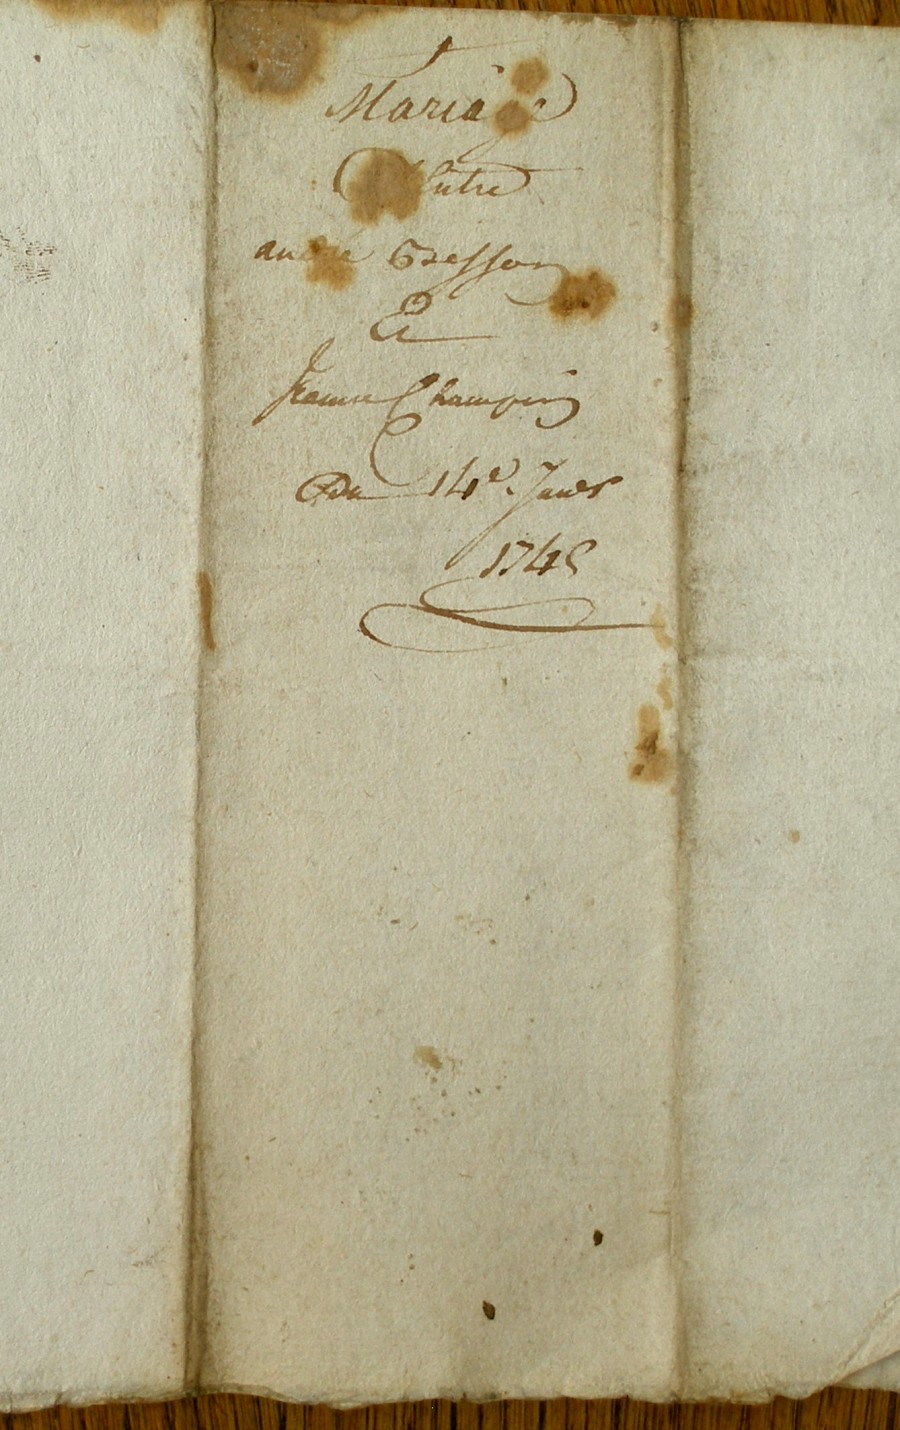 Mariage
Entre
andré Besson
Et
Jeanne Champin
Du 14e. Janer
174